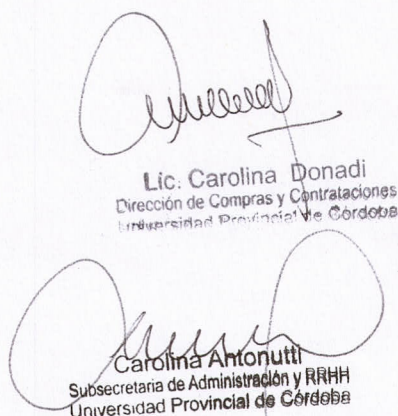 Lic. Carolina Donadi
Dirección de Compras y Contrataciones
Universidad Provincial de Córdoba
Carolina Antonutti
Subsecretaria de Administración y RRHH
Universidad Provincial de Córdoba